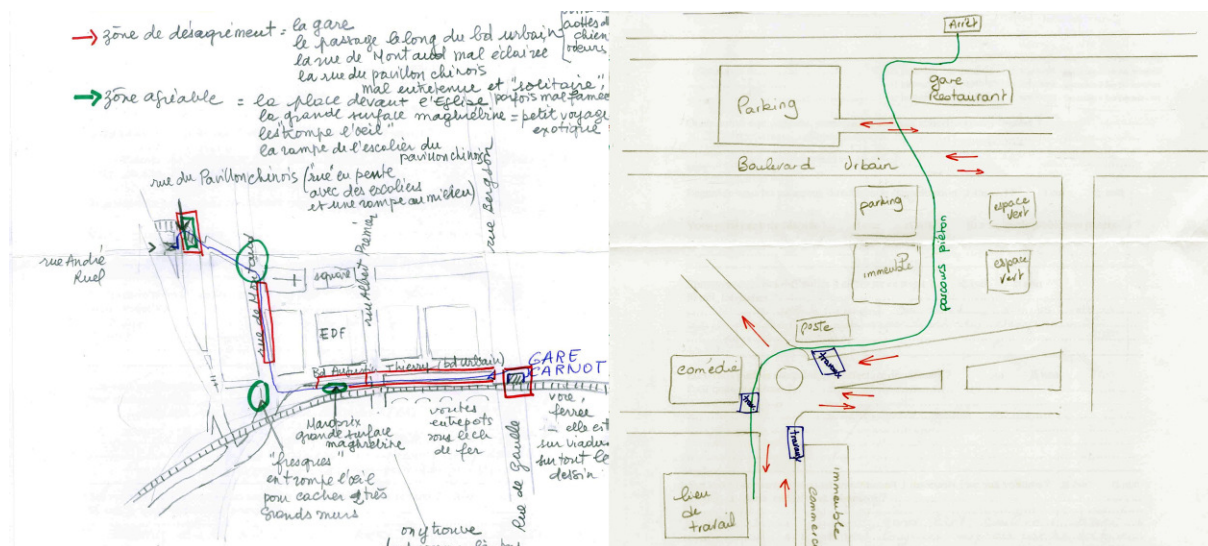 → zône de désagrément = la gare
le passage le long du bd urbain
la rue de Montaud mal éclairée
la rue du pavillon chinois
mal entretenue et "solitaire",
parfois mal famée
crottes de
chien
odeurs
→ zône agréable = la place devant l'Eglise
la grande surface maghrébine = petit voyage
exotique
les "trompe l'œil"
la rampe de l'escalier du
pavillon chinois
rue du Pavillon chinois (rue en pente
avec des escaliers
et une rampe au milieu)
rue Bergson
rue André
Ruel
rue de Montaud
square
rue Albert Premier
EDF
Bd Augustin Thierry (bd urbain)
GARE
CARNOT
Maroprix
grande surface
maghrébine
voutes
entrepots
sous le ch.
de fer
voie
ferrée
elle est
sur viaduc
sur tout le
dessin
"fresques"
en trompe l'œil
pour cacher 2 très
grands murs
Rue de Gaulle
on y trouve
Arrêt
gare
Restaurant
Parking
Boulevard Urbain
parking
espace
vert
immeuble
espace
vert
parcours piéton
poste
travaux
comédie
trav.
travaux
lieu
de
travail
immeuble
commerce